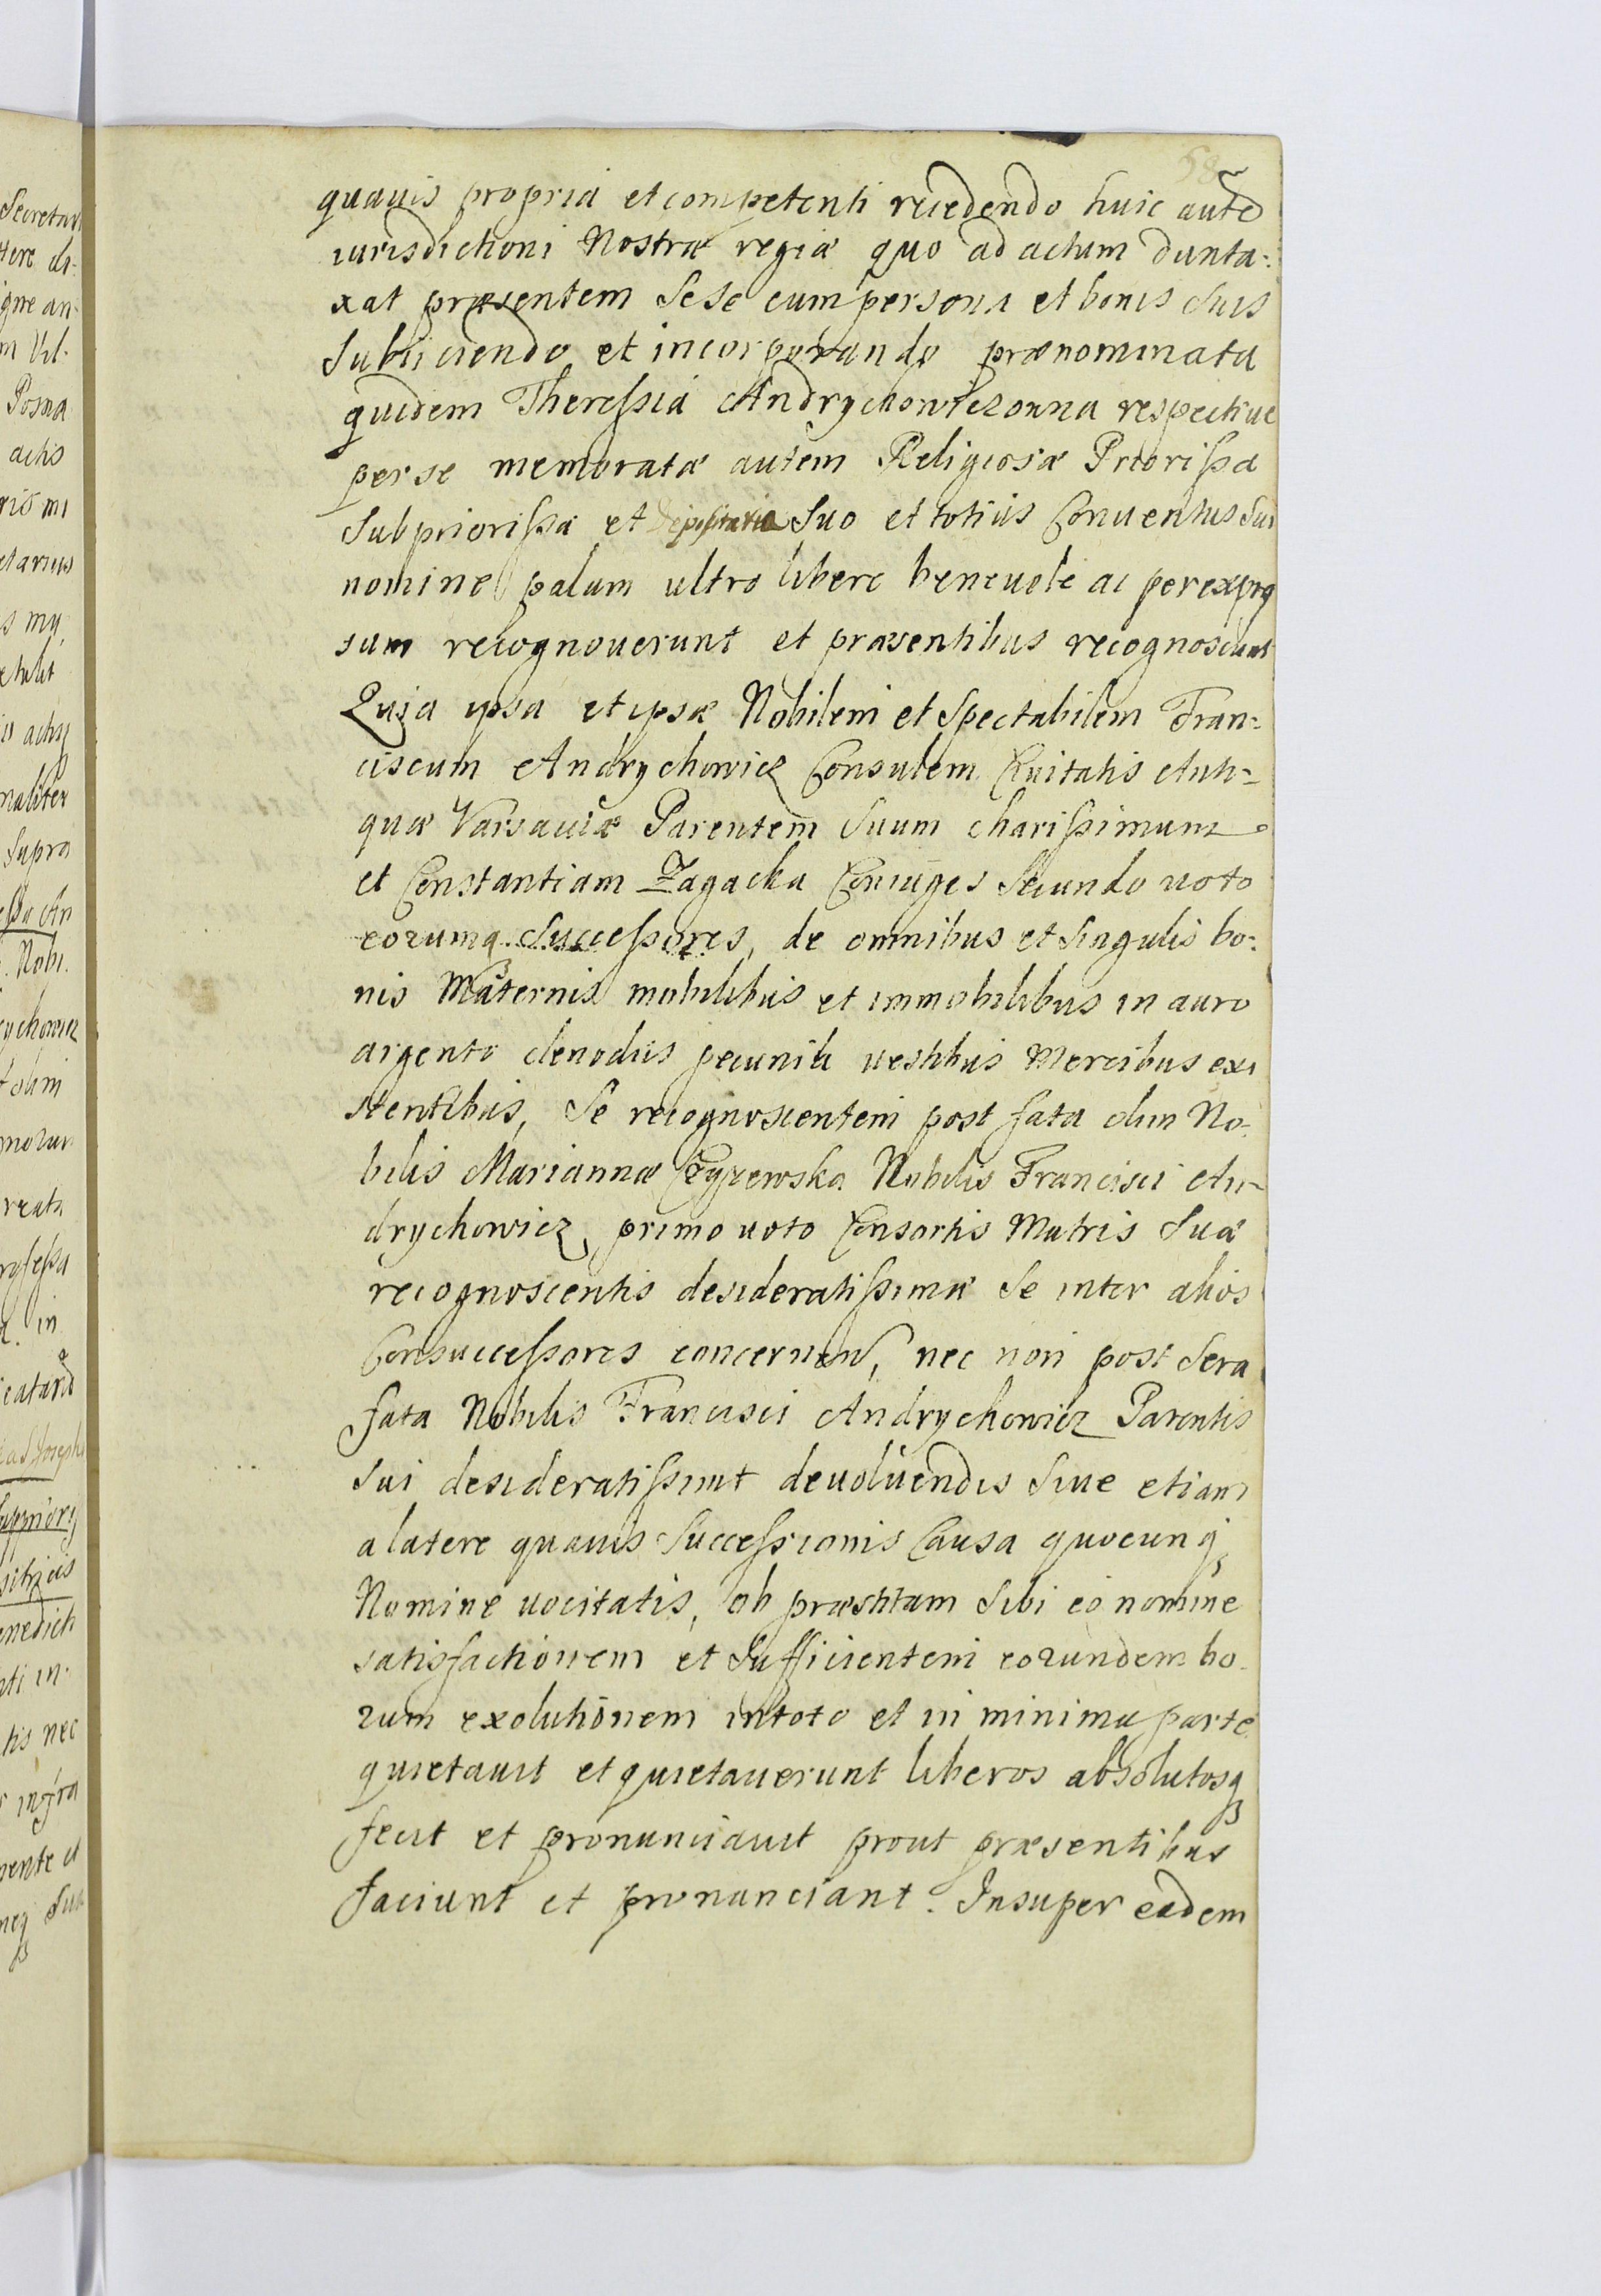 quauis propria et competenti recedendo huic autē
iurisdictioni Nostræ regiæ quo ad actum dunta-
xat præsentem sese cum persona et bonis suis
subiiciendo et incorporando prænominata
quidem Theressia Andrychowiczowna respective
per se memoratæ autem Religiosæ Priorissa
Subpriorissa et Depositaria suo et totius Conuentus sui
nomine palam ultro libere beneuole ac per expres
sum recognouerunt et præsentibus recognoscunt
Quia ipsa et ipsæ Nobilem et Spectabilem Fran-
ciscum Andrychowicz Consulem Ciuitatis Anti-
quæ Varsauiæ Parentem suum charissimum
et Constantiam Zagacka Coniuges secundo uoto
eorumq Successores, de omnibus et singulis bo-
nis Maternis mobilibus et immobilibus in auro
argento clenodiis pecunia uestibus Mercibus exi
stentibus, se recognoscentem post fata olim No-
bilis Mariannæ Czyzewska Nobilis Francisci An-
drychowicz, primo uoto Consortis Matris suæ
recognoscentis desideratissimæ se inter alios
Consuccessores concernen, nec non post sera
fata Nobilis Francisci Andrychowicz Parentis
sui desideratissimi deuoluendis siue etiam
a latere quauis Successionis Causa quocunq
Nomine uocitatis, ob præstitam sibi eo nomine
satisfactionem et sufficientem eorundem bo-
rum exolutionem in toto et in minima parte
quietauit et quietauerunt liberos absolutosq
fecit et pronunciauit prout præsentibus
faciunt et pronunciant. Insuper eadem